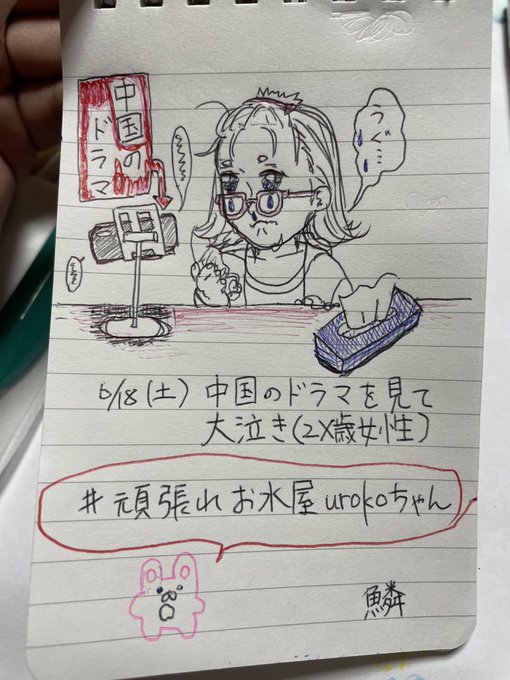 中国の
ドラマ
うぐ…
6/18(土) 中国のドラマを見て
大泣き(2X歳女性)
#頑張れお水屋urokoちゃん
鱗